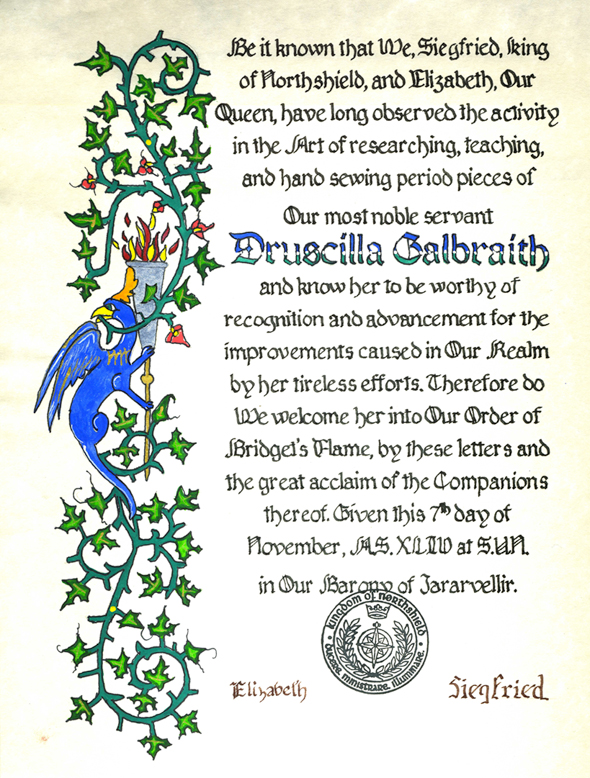 Be it known that We, Siegfried, King
of Northshield, and Elizabeth, Our
Queen, have long observed the activity
in the Art of researching, teaching,
and hand sewing period pieces of
Our most noble servant
Druscilla Galbraith
and know her to be worthy of
recognition and advancement for the
improvements caused in Our Realm
by her tireless efforts. Therefore do
We welcome her into Our Order of
Bridget's Flame, by these letters and
the great acclaim of the Companions
thereof. Given this 7th day of
November, A.S. XLIV at S.U.N.
in Our Barony of Jararvellir.
Kingdom of Northshield
Ducere, Ministrare, Illuminare
Elizabeth
Siegfried